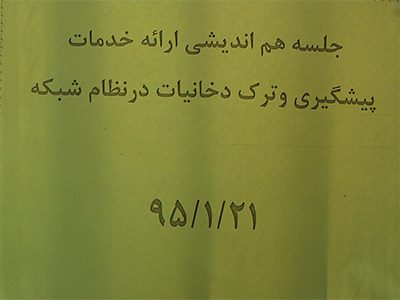 جلسه هم اندیشی ارائه خدمات
پیشگیری وترک دخانیات درنظام شبکه
۹۵/۱/۲۱